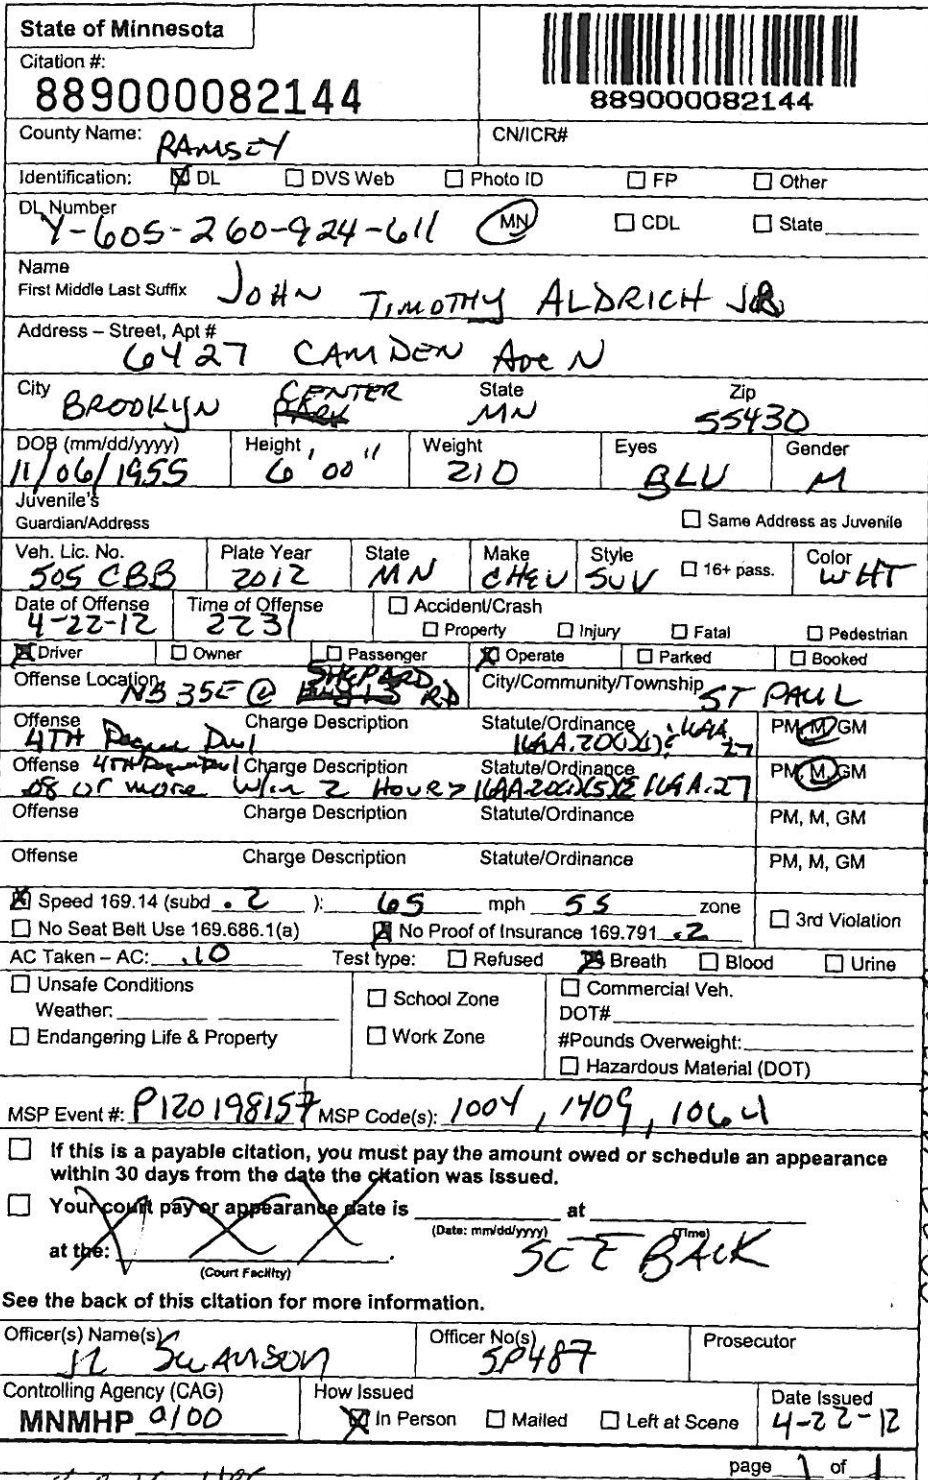 State of Minnesota
Citation #:
889000082144
889000082144
County Name: RAMSEY CN/ICR#
Identification: DL DVS Web Photo ID FP Other
DL Number Y-605-260-924-611 MN CDL State
Name
First Middle Last Suffix JOHN TIMOTHY ALDRICH JR
Address – Street, Apt #
6427 CAMDEN Ave N
City BROOKLYN CENTER State MN Zip 55430
DOB (mm/dd/yyyy) Height Weight Eyes Gender
11/06/1955 6'00" 210 BLU M
Juvenile's
Guardian/Address Same Address as Juvenile
Veh. Lic. No. Plate Year State Make Style 16+ pass. Color
505 CBB 2012 MN CHEV SUV WHT
Date of Offense Time of Offense Accident/Crash
4-22-12 2231 Property Injury Fatal Pedestrian
Driver Owner Passenger Operate Parked Booked
Offense Location NB 35E @ SHEPARD RD City/Community/Township ST PAUL
Offense Charge Description Statute/Ordinance PM, M, GM
4TH Degree DWI 169A.20(1)(1); 169A.27
Offense 4TH Degree DWI Charge Description Statute/Ordinance PM, M, GM
.08 or more w/in 2 Hours 169A.20(1)(5) 169A.27
Offense Charge Description Statute/Ordinance PM, M, GM
Offense Charge Description Statute/Ordinance PM, M, GM
Speed 169.14 (subd .2 ): 65 mph 55 zone 3rd Violation
No Seat Belt Use 169.686.1(a) No Proof of Insurance 169.791 .2
AC Taken – AC: .10 Test type: Refused Breath Blood Urine
Unsafe Conditions School Zone Commercial Veh.
Weather: DOT#
Endangering Life & Property Work Zone #Pounds Overweight:
Hazardous Material (DOT)
MSP Event #: P120198157 MSP Code(s): 1004, 1409, 1064
If this is a payable citation, you must pay the amount owed or schedule an appearance
within 30 days from the date the citation was issued.
Your court pay or appearance date is at
(Date: mm/dd/yyyy) (Time)
at the: . SEE BACK
(Court Facility)
See the back of this citation for more information.
Officer(s) Name(s) Officer No(s) Prosecutor
SWANSON SP487
Controlling Agency (CAG) How Issued Date Issued
MNMHP 0100 In Person Mailed Left at Scene 4-22-12
page 1 of 1